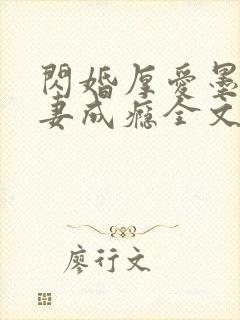 閃婚厚愛墨
妻成癮全文
廖行文